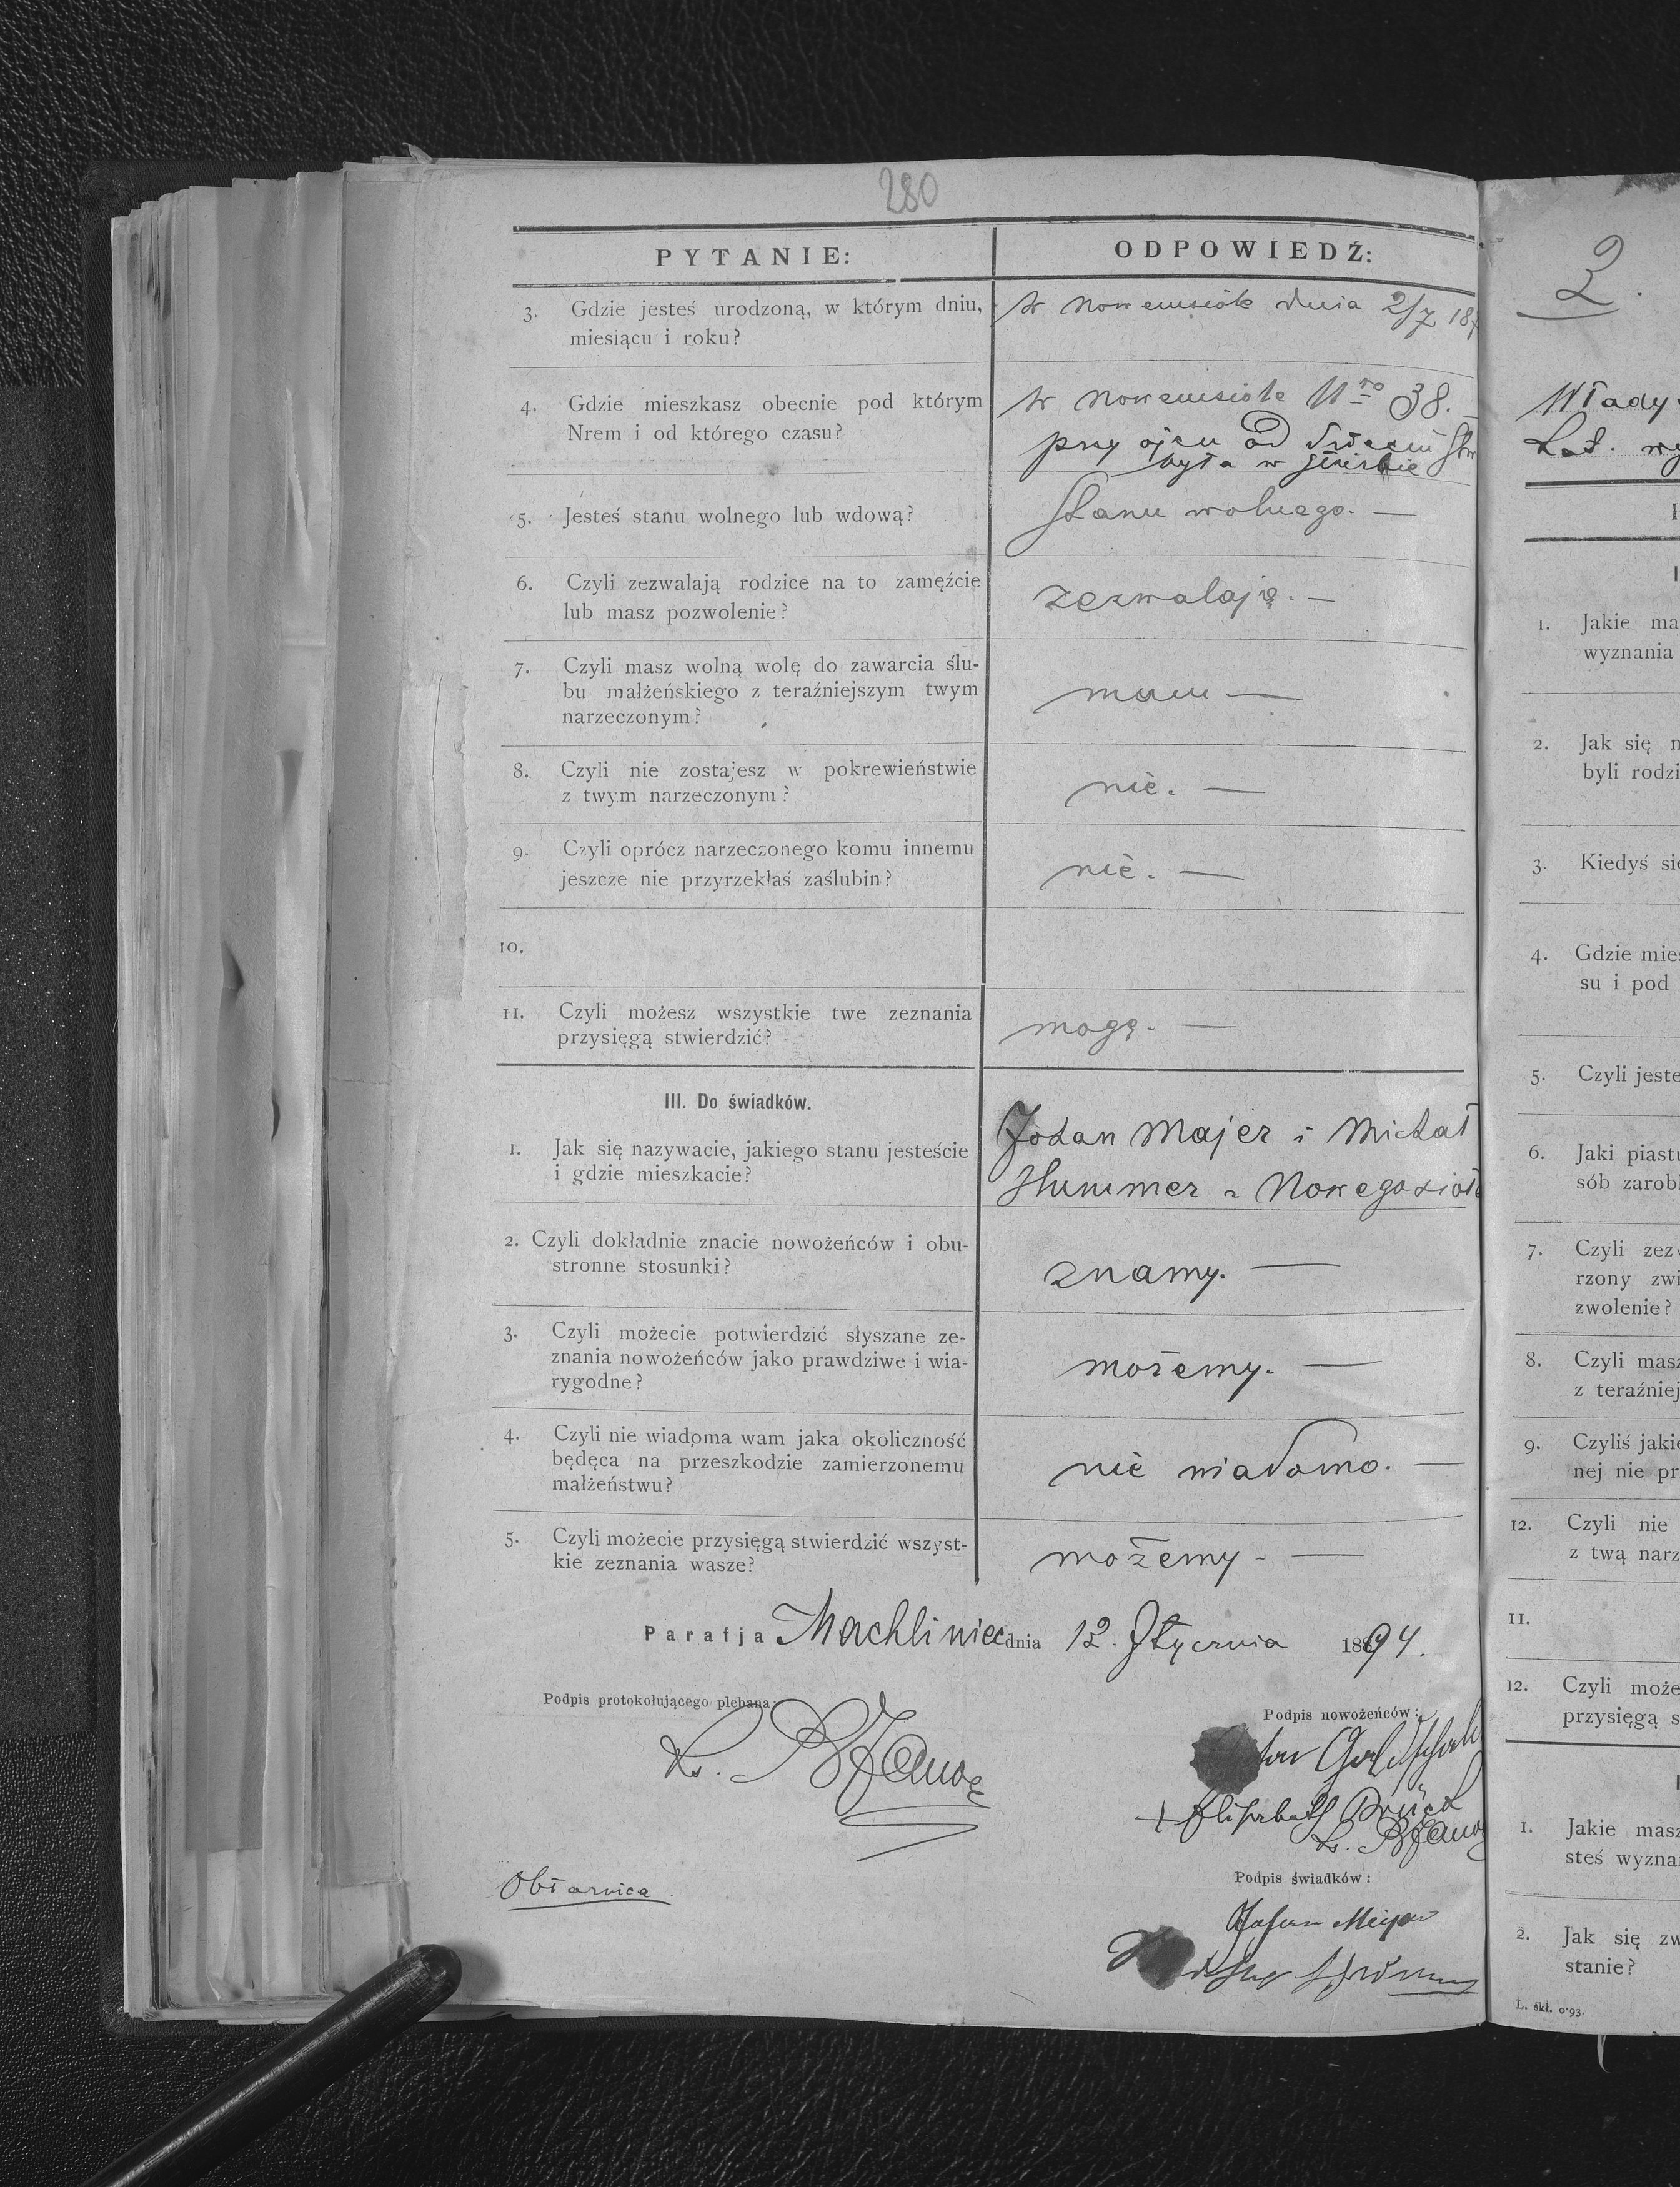 280
PYTANIE:
ODPOWIEDŹ:
3. Gdzie jesteś urodzoną, w którym dniu,
miesiącu i roku?
w Nowemsiole dnia 2/7 187
4. Gdzie mieszkasz obecnie pod którym
Nrem i od którego czasu?
w Nowemsiole Nro 38. —
przy ojcu od
była w
5. Jesteś stanu wolnego lub wdową?
Stanu wolnego. —
6. Czyli zezwalają rodzice na to zamęźcie
lub masz pozwolenie?
zezwalają. —
7. Czyli masz wolną wolę do zawarcia ślu-
bu małżeńskiego z teraźniejszym twym
narzeczonym?
mam —
8. Czyli nie zostajesz w pokrewieństwie
z twym narzeczonym?
nie. —
9. Czyli oprócz narzeczonego komu innemu
jeszcze nie przyrzekłaś zaślubin?
nie. —
10.
11. Czyli możesz wszystkie twe zeznania
przysięgą stwierdzić?
mogę. —
III. Do świadków.
1. Jak się nazywacie, jakiego stanu jesteście
i gdzie mieszkacie?
Johan Majer i Michał
z Nowegosioła
2. Czyli dokładnie znacie nowożeńców i obu-
stronne stosunki?
znamy. —
3. Czyli możecie potwierdzić słyszane ze-
znania nowożeńców jako prawdziwe i wia-
rygodne?
możemy. —
4. Czyli nie wiadoma wam jaka okoliczność
będęca na przeszkodzie zamierzonemu
małżeństwu?
nie wiadomo. —
5. Czyli możecie przysięgą stwierdzić wszyst-
kie zeznania wasze?
możemy - —
Parafja Machliniec dnia 12. Stycznia 1894.
Podpis protokołującego plebana:
Podpis nowożeńców:
X.
+ Elisabeth Brück
Podpis świadków:
Obłaznica
2.
Włady
Lat.
1. Jakie ma
wyznania
2. Jak się n
byli rodzi
3. Kiedyś się
4. Gdzie mies
su i pod
5. Czyli jeste
6. Jaki piastu
sób zarobi
7. Czyli zezw
rzony zwi
zwolenie?
8. Czyli masz
z teraźniej
9. Czyliś jakie
nej nie pr
12. Czyli nie
z twą narz
11.
12. Czyli może
przysięgą s
1. Jakie masz
steś wyzna
2. Jak się zw
stanie?
L. skł. 0·93.